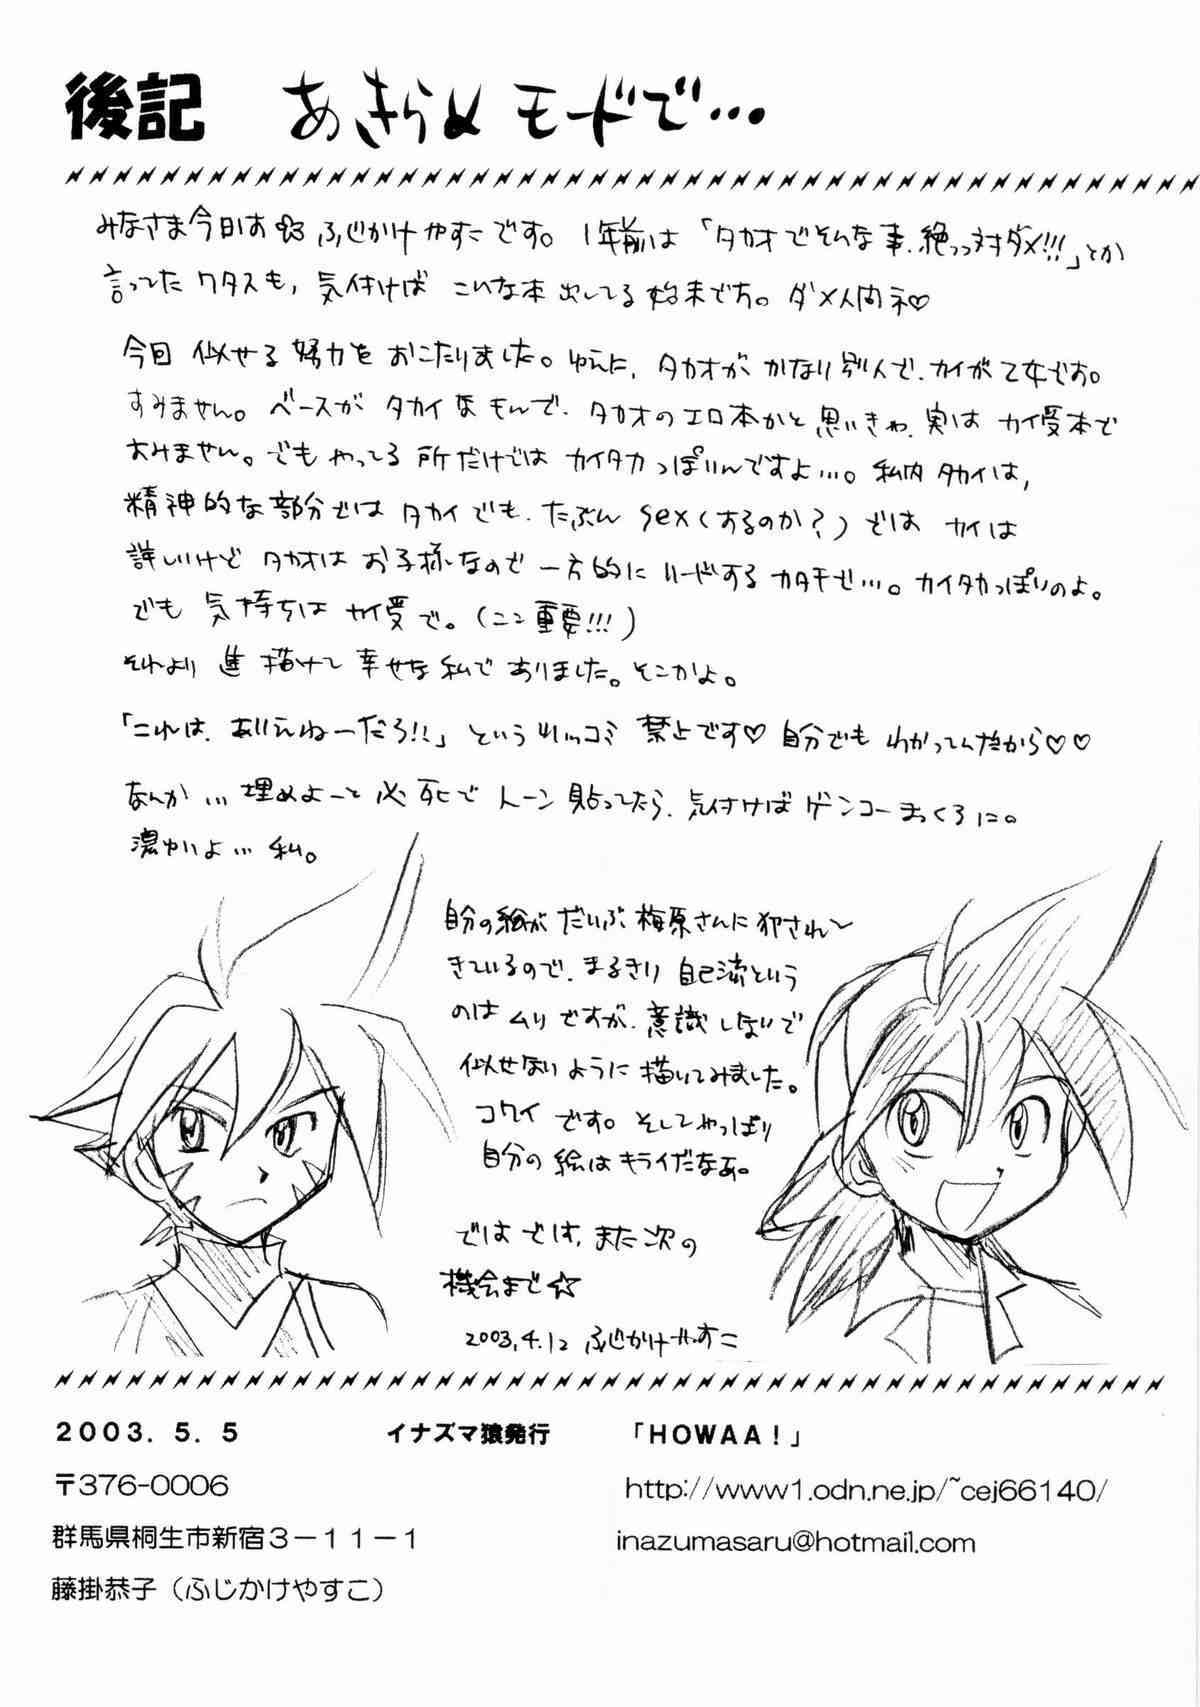 後記 あきらめモードで…
みなさま今日は ふじかけやすこです。1年前は「タカオでそんな事、絶っっ対ダメ!!!」とか
言ってたワタスも、気付けば こんな本出してる始末です。ダメ人間ネ♡
今回 似せる努力を おこたりました。ゆえに、タカオが かなり別人で、カイが乙女です。
すみません。ベースが タカイなもんで、タカオのエロ本かと思いきゃ、実は カイ受本で
すみません。でも やってる所だけでは カイタカっぽいんですよ…。私内タカイは、
精神的な部分では タカイでも、たぶん sex(するのか?)では カイは
詳しいけど タカオは お子様なので 一方的に リードするカタチで…。カイタカっぽいのよ。
でも 気持ちは カイ受で。(ココ重要!!!)
それより 進 描けて 幸せな 私で ありました。そこかよ。
「これは、ありえねーだろ!!」という ツッコミ 禁止です♡ 自分でも わかってんだから♡♡
なんか … 埋めよーと 必死で トーン貼ってたら、気付けば ゲンコー まっくろに。
濃ゆいよ… 私。
自分の絵が だいぶ 梅原さんに 犯されて
きているので、まるきり 自己流という
のは ムリですが、意識しないで
似せないように 描いてみました。
コワイ です。そしてやっぱり
自分の 絵は キライだなあ。
ではでは、また次の
機会まで☆
2003.4.12 ふじかけやすこ
2003.5.5 イナズマ猿発行 「HOWAA!」
〒376-0006
http://www1.odn.ne.jp/~cej66140/
群馬県桐生市新宿3-11-1
inazumasaru@hotmail.com
藤掛恭子(ふじかけやすこ)